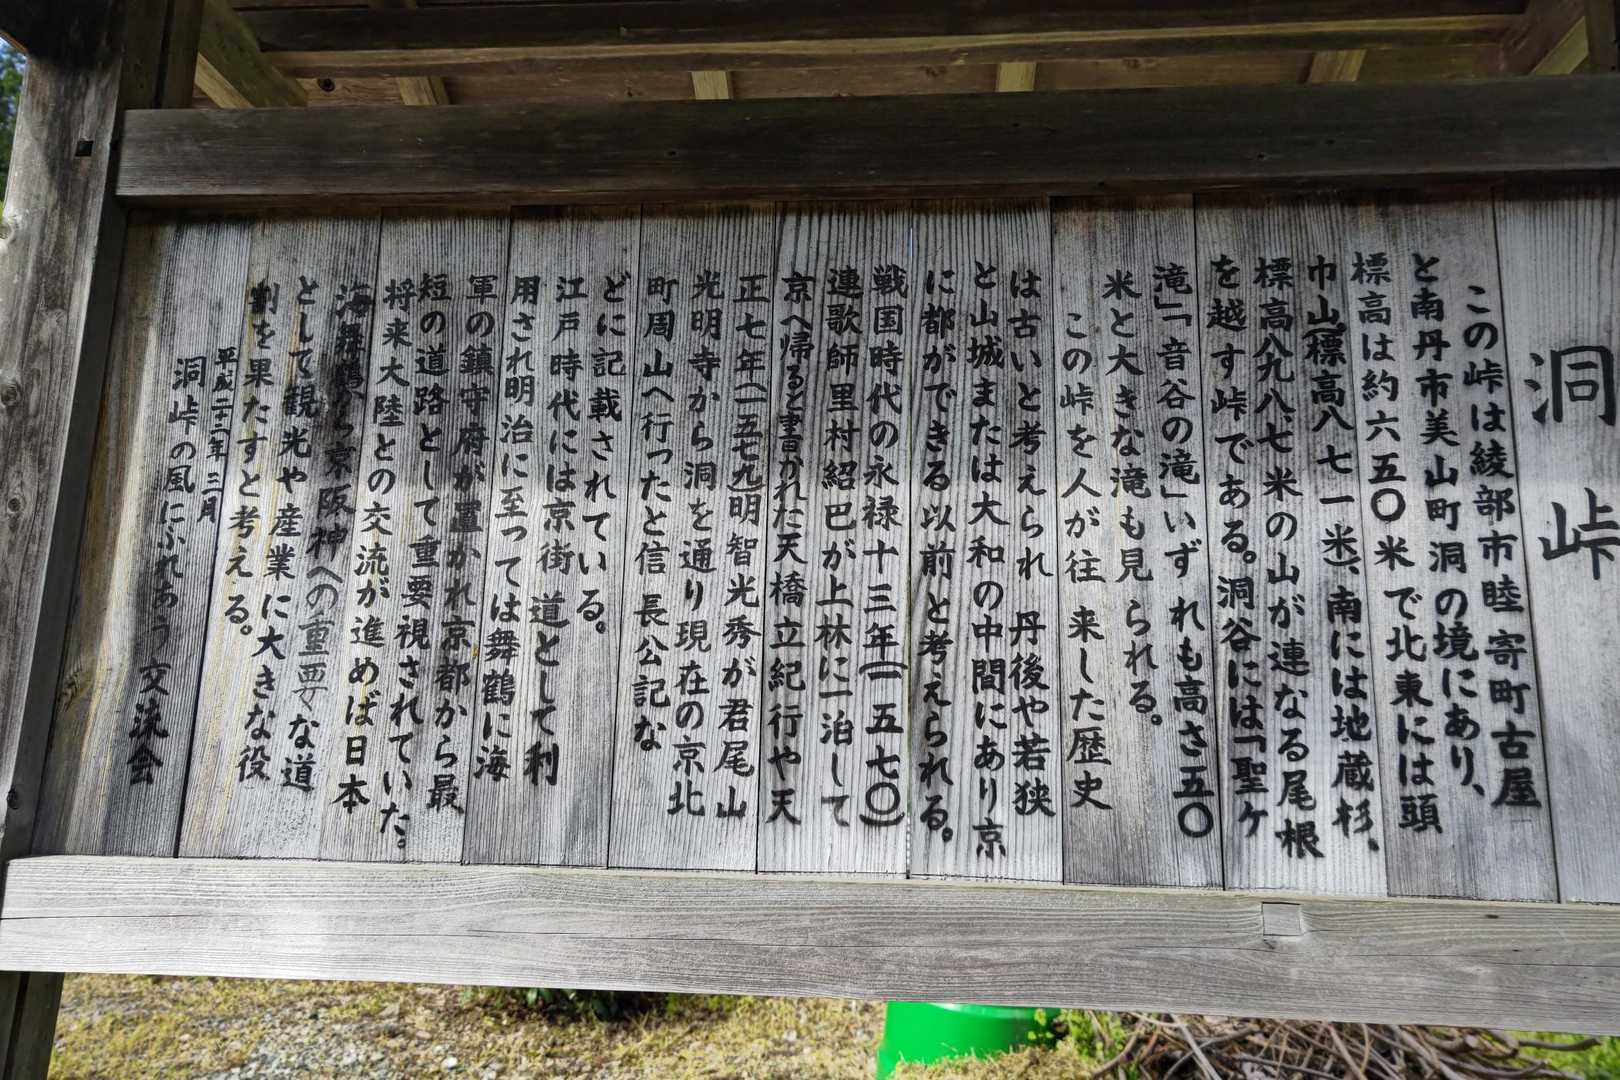 洞峠
この峠は綾部市睦寄町古屋
と南丹市美山町洞の境にあり、
標高は約六五〇米で北東には頭
巾山(標高八七一米)、南には地蔵杉、
標高八九八、七米の山が連なる尾根
を越す峠である。洞谷には「聖ケ
滝」「音谷の滝」いずれも高さ五〇
米と大きな滝も見られる。
この峠を人が往来した歴史
は古いと考えられ丹後や若狭
と山城または大和の中間にあり京
に都ができる以前と考えられる。
戦国時代の永禄十三年(一五七〇)
連歌師里村紹巴が上林に一泊して
京へ帰ると書かれた天橋立紀行や天
正七年(一五七九)明智光秀が君尾山
光明寺から洞を通り現在の京北
町周山へ行ったと信長公記な
どに記載されている。
江戸時代には京街道として利
用され明治に至っては舞鶴に海
軍の鎮守府が置かれ京都から最
短の道路として重要視されていた。
将来大陸との交流が進めば日本
海舞鶴から京阪神への重要な道
として観光や産業に大きな役
割を果たすと考える。
平成二十二年三月
洞峠の風にふれあう交流会